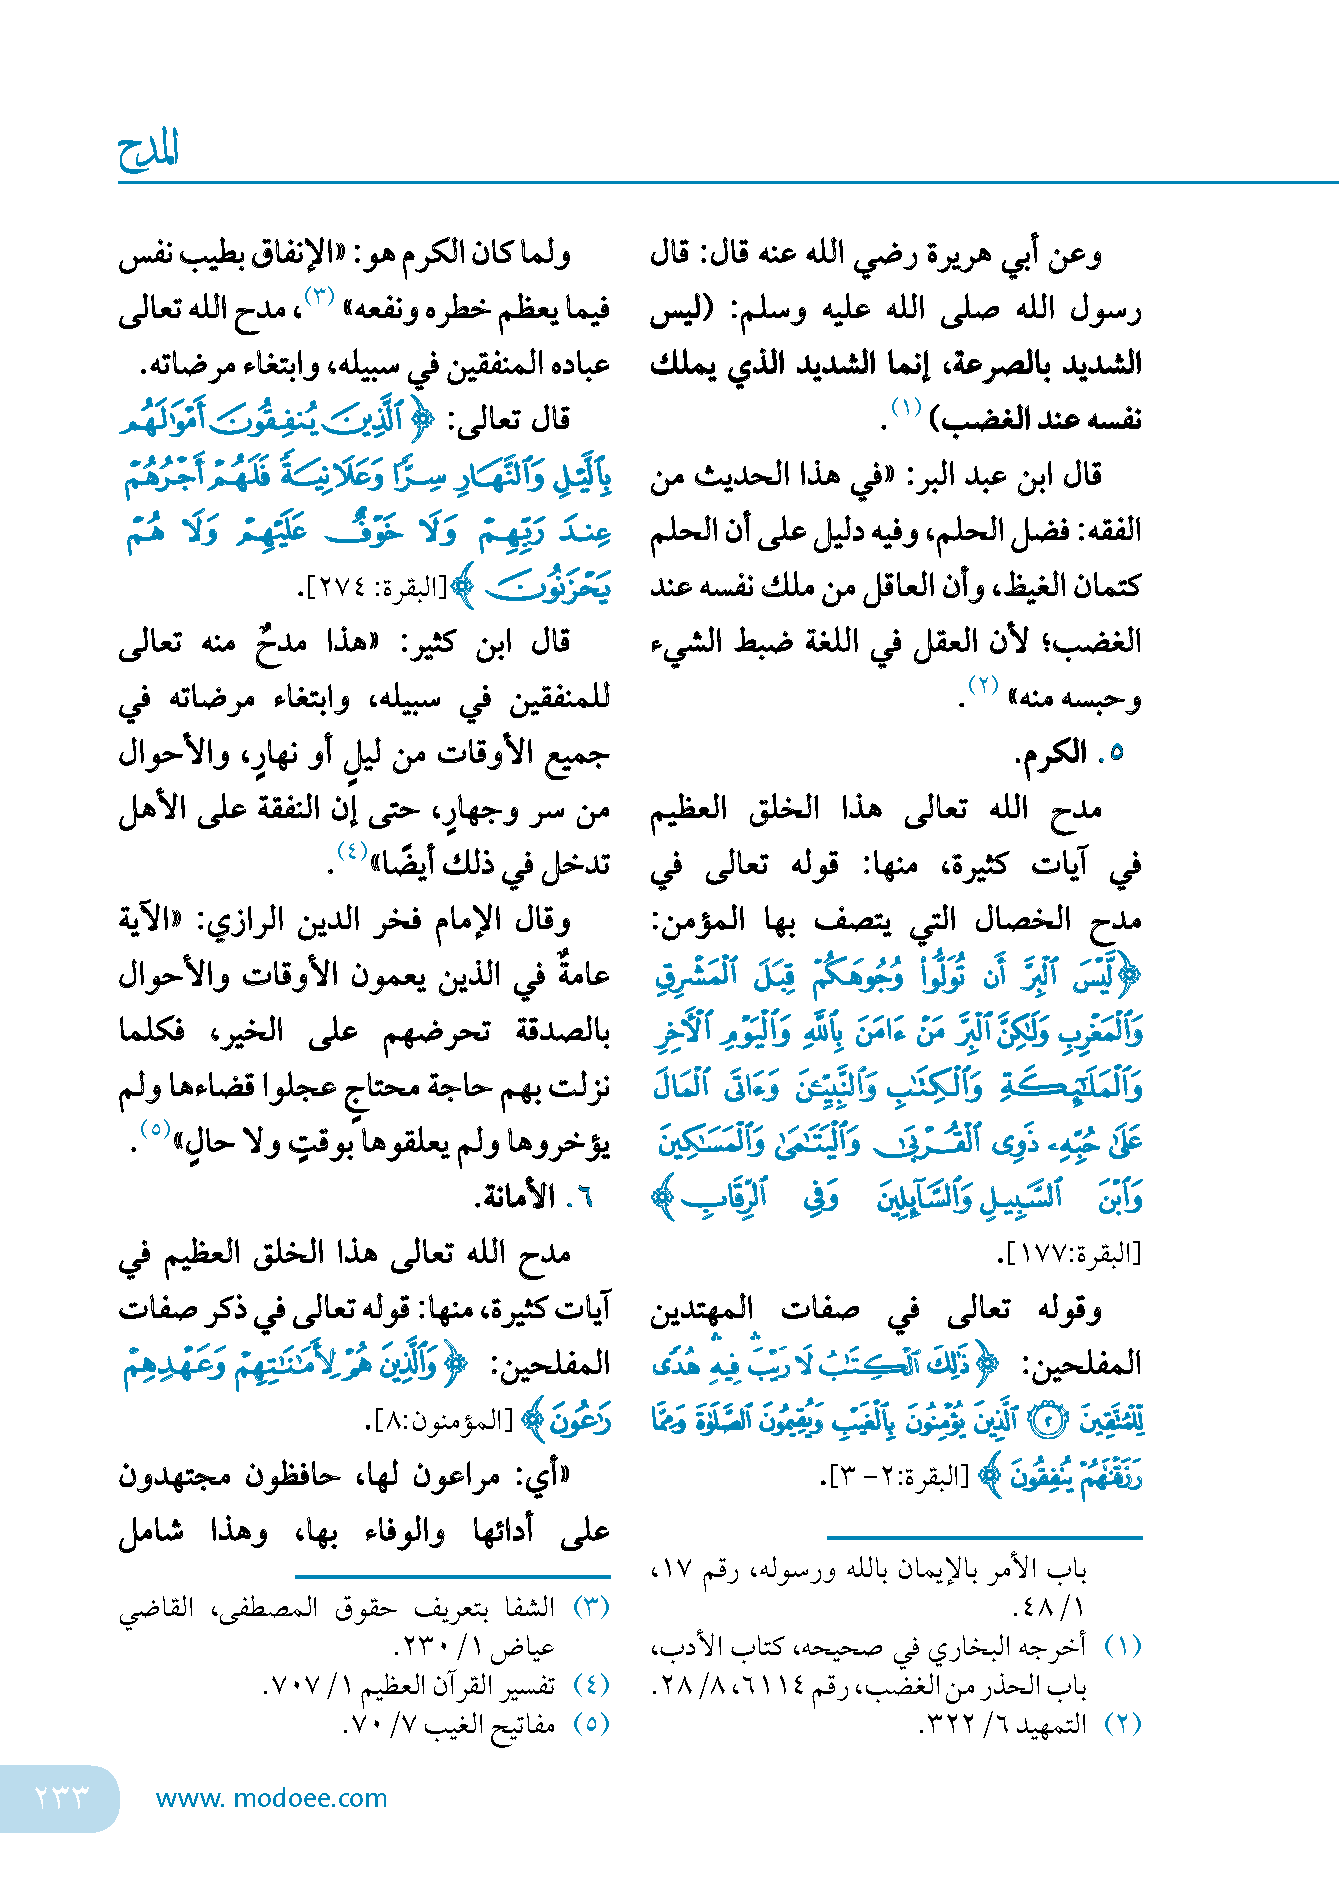 المدح
وعن أبي هريرة رضي الله عنه قال: قال
رسول الله صلى الله عليه وسلم: (ليس
الشديد بالصرعة، إنما الشديد الذي يملك
نفسه عند الغضب) (١).
قال ابن عبد البر: «في هذا الحديث من
الفقه: فضل الحلم، وفيه دليل على أن الحلم
كتمان الغيظ، وأن العاقل من ملك نفسه عند
الغضب؛ لأن العقل في اللغة ضبط الشيء
وحبسه منه» (٢).
٥. الكرم.
مدح الله تعالى هذا الخلق العظيم
في آيات كثيرة، منها: قوله تعالى في
مدح الخصال التي يتصف بها المؤمن:
﴿لَّيْسَ ٱلْبِرَّ أَن تُوَلُّوا۟ وُجُوهَكُمْ قِبَلَ ٱلْمَشْرِقِ
وَٱلْمَغْرِبِ وَلَٰكِنَّ ٱلْبِرَّ مَنْ ءَامَنَ بِٱللَّهِ وَٱلْيَوْمِ ٱلْآخِرِ
وَٱلْمَلَٰٓئِكَةِ وَٱلْكِتَٰبِ وَٱلنَّبِيِّـۧنَ وَءَاتَى ٱلْمَالَ
عَلَىٰ حُبِّهِۦ ذَوِى ٱلْقُرْبَىٰ وَٱلْيَتَٰمَىٰ وَٱلْمَسَٰكِينَ
وَٱبْنَ ٱلسَّبِيلِ وَٱلسَّآئِلِينَ وَفِى ٱلرِّقَابِ﴾
[البقرة:١٧٧].
وقوله تعالى في صفات المهتدين
المفلحين: ﴿ذَٰلِكَ ٱلْكِتَٰبُ لَا رَيْبَ ۛ فِيهِ ۛ هُدًى
لِّلْمُتَّقِينَ ۝٢ ٱلَّذِينَ يُؤْمِنُونَ بِٱلْغَيْبِ وَيُقِيمُونَ ٱلصَّلَوٰةَ وَمِمَّا
رَزَقْنَٰهُمْ يُنفِقُونَ﴾ [البقرة:٢- ٣].
باب الأمر بالإيمان بالله ورسوله، رقم ١٧،
١/ ٤٨.
(١) أخرجه البخاري في صحيحه، كتاب الأدب،
باب الحذر من الغضب، رقم ٦١١٤، ٨/ ٢٨.
(٢) التمهيد ٦/ ٣٢٢.
ولما كان الكرم هو: «الإنفاق بطيب نفس
فيما يعظم خطره ونفعه» (٣)، مدح الله تعالى
عباده المنفقين في سبيله، وابتغاء مرضاته.
قال تعالى: ﴿ٱلَّذِينَ يُنفِقُونَ أَمْوَٰلَهُم
بِٱلَّيْلِ وَٱلنَّهَارِ سِرًّا وَعَلَانِيَةً فَلَهُمْ أَجْرُهُمْ
عِندَ رَبِّهِمْ وَلَا خَوْفٌ عَلَيْهِمْ وَلَا هُمْ
يَحْزَنُونَ﴾ [البقرة: ٢٧٤].
قال ابن كثير: «هذا مدحٌ منه تعالى
للمنفقين في سبيله، وابتغاء مرضاته في
جميع الأوقات من ليلٍ أو نهارٍ، والأحوال
من سر وجهارٍ، حتى إن النفقة على الأهل
تدخل في ذلك أيضًا»(٤).
وقال الإمام فخر الدين الرازي: «الآية
عامةٌ في الذين يعمون الأوقات والأحوال
بالصدقة تحرضهم على الخير، فكلما
نزلت بهم حاجة محتاجٍ عجلوا قضاءها ولم
يؤخروها ولم يعلقوها بوقتٍ ولا حالٍ»(٥).
٦. الأمانة.
مدح الله تعالى هذا الخلق العظيم في
آيات كثيرة، منها: قوله تعالى في ذكر صفات
المفلحين: ﴿وَٱلَّذِينَ هُمْ لِأَمَٰنَٰتِهِمْ وَعَهْدِهِمْ
رَٰعُونَ﴾ [المؤمنون:٨].
«أي: مراعون لها، حافظون مجتهدون
على أدائها والوفاء بها، وهذا شامل
(٣) الشفا بتعريف حقوق المصطفى، القاضي
عياض ١/ ٢٣٠.
(٤) تفسير القرآن العظيم ١/ ٧٠٧.
(٥) مفاتيح الغيب ٧/ ٧٠.
٢٣٣
www. modoee.com